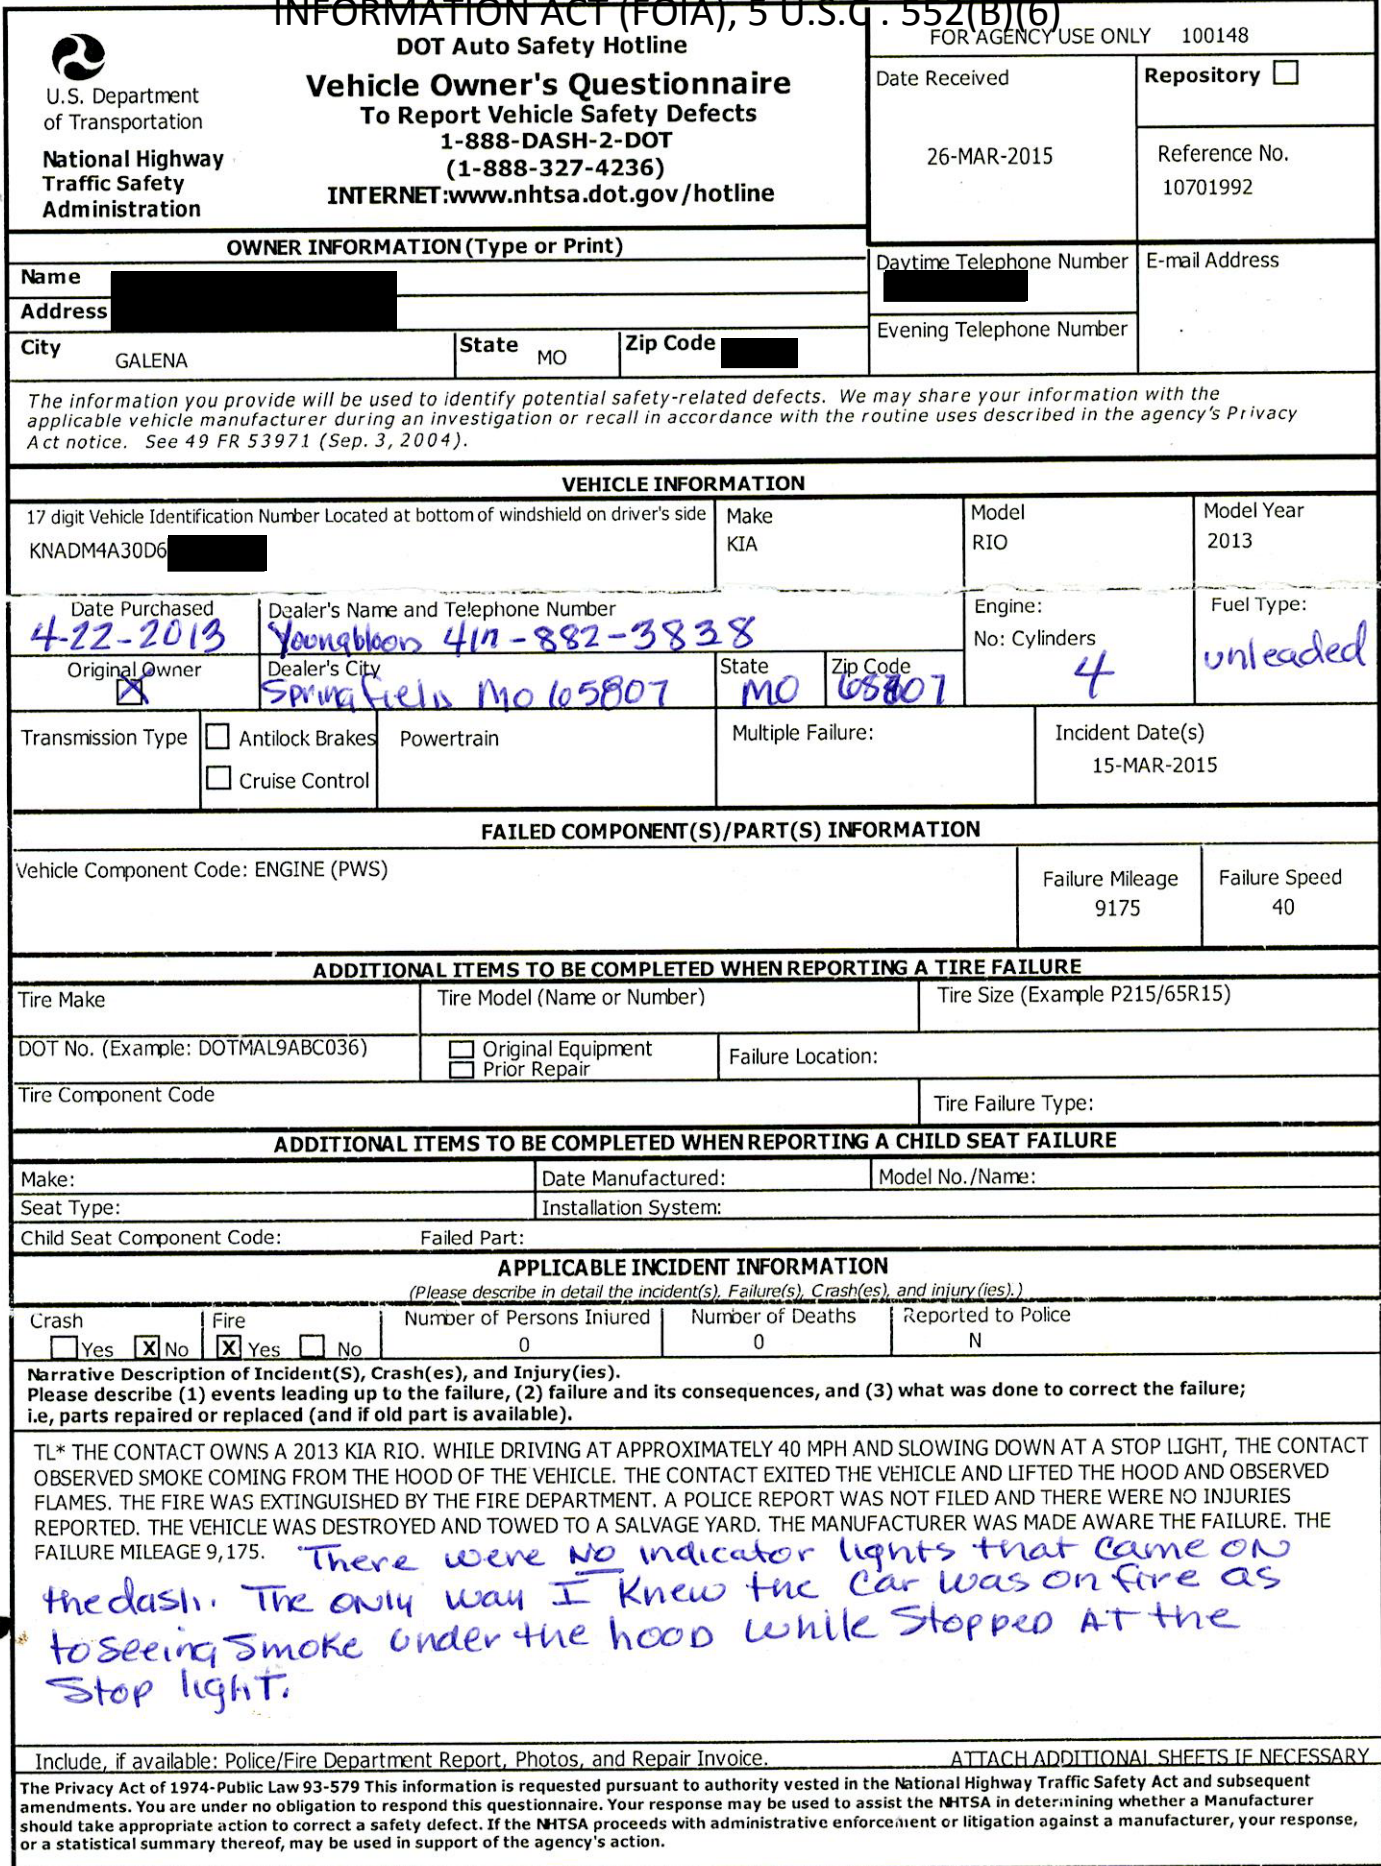 INFORMATION ACT (FOIA), 5 U.S.C . 552(B)(6)
U.S. Department
of Transportation
National Highway
Traffic Safety
Administration
DOT Auto Safety Hotline
Vehicle Owner's Questionnaire
To Report Vehicle Safety Defects
1-888-DASH-2-DOT
(1-888-327-4236)
INTERNET:www.nhtsa.dot.gov/hotline
FOR AGENCY USE ONLY 100148
Date Received
26-MAR-2015
Repository
Reference No.
10701992
OWNER INFORMATION (Type or Print)
Name
Address
City GALENA State MO Zip Code
Daytime Telephone Number
Evening Telephone Number
E-mail Address
The information you provide will be used to identify potential safety-related defects. We may share your information with the
applicable vehicle manufacturer during an investigation or recall in accordance with the routine uses described in the agency's Privacy
Act notice. See 49 FR 53971 (Sep. 3, 2004).
VEHICLE INFORMATION
17 digit Vehicle Identification Number Located at bottom of windshield on driver's side
KNADM4A30D6
Make
KIA
Model
RIO
Model Year
2013
Date Purchased
4-22-2013
Dealer's Name and Telephone Number
Youngbloon 417-882-3838
Engine:
No: Cylinders
4
Fuel Type:
unleaded
Original Owner
X
Dealer's City
Springfield Mo 65807
State
MO
Zip Code
65807
Transmission Type
Antilock Brakes
Cruise Control
Powertrain
Multiple Failure:
Incident Date(s)
15-MAR-2015
FAILED COMPONENT(S)/PART(S) INFORMATION
Vehicle Component Code: ENGINE (PWS)
Failure Mileage
9175
Failure Speed
40
ADDITIONAL ITEMS TO BE COMPLETED WHEN REPORTING A TIRE FAILURE
Tire Make
Tire Model (Name or Number)
Tire Size (Example P215/65R15)
DOT No. (Example: DOTMAL9ABC036)
Original Equipment
Prior Repair
Failure Location:
Tire Component Code
Tire Failure Type:
ADDITIONAL ITEMS TO BE COMPLETED WHEN REPORTING A CHILD SEAT FAILURE
Make:
Date Manufactured:
Model No./Name:
Seat Type:
Installation System:
Child Seat Component Code:
Failed Part:
APPLICABLE INCIDENT INFORMATION
(Please describe in detail the incident(s), Failure(s), Crash(es), and injury(ies).)
Crash
Yes X No
Fire
X Yes No
Number of Persons Injured
0
Number of Deaths
0
Reported to Police
N
Narrative Description of Incident(S), Crash(es), and Injury(ies).
Please describe (1) events leading up to the failure, (2) failure and its consequences, and (3) what was done to correct the failure;
i.e, parts repaired or replaced (and if old part is available).
TL* THE CONTACT OWNS A 2013 KIA RIO. WHILE DRIVING AT APPROXIMATELY 40 MPH AND SLOWING DOWN AT A STOP LIGHT, THE CONTACT
OBSERVED SMOKE COMING FROM THE HOOD OF THE VEHICLE. THE CONTACT EXITED THE VEHICLE AND LIFTED THE HOOD AND OBSERVED
FLAMES. THE FIRE WAS EXTINGUISHED BY THE FIRE DEPARTMENT. A POLICE REPORT WAS NOT FILED AND THERE WERE NO INJURIES
REPORTED. THE VEHICLE WAS DESTROYED AND TOWED TO A SALVAGE YARD. THE MANUFACTURER WAS MADE AWARE THE FAILURE. THE
FAILURE MILEAGE 9,175. There were NO indicator lights that came ON
the dash. The ONly way I Knew the car was on fire as
to seeing Smoke under the hooD while StoppeD AT the
Stop lighT.
Include, if available: Police/Fire Department Report, Photos, and Repair Invoice. ATTACH ADDITIONAL SHEETS IF NECESSARY
The Privacy Act of 1974-Public Law 93-579 This information is requested pursuant to authority vested in the National Highway Traffic Safety Act and subsequent
amendments. You are under no obligation to respond this questionnaire. Your response may be used to assist the NHTSA in determining whether a Manufacturer
should take appropriate action to correct a safety defect. If the NHTSA proceeds with administrative enforcement or litigation against a manufacturer, your response,
or a statistical summary thereof, may be used in support of the agency's action.